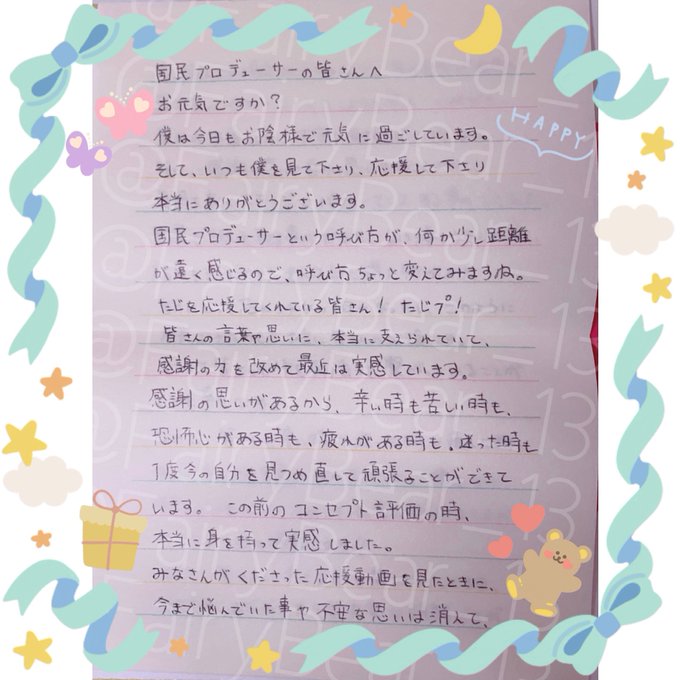 国民プロデューサーの皆さんへ
お元気ですか?
僕は今日もお陰様で元気に過ごしています。
そして、いつも僕を見て下さり、応援して下さり
本当にありがとうございます。
国民プロデューサーという呼び方が、何か少し距離
が遠く感じるので、呼び方ちょっと変えてみますね。
たじを応援してくれている皆さん!たじプ!
皆さんの言葉や思いに、本当に支えられていて、
感謝の力を改めて最近は実感しています。
感謝の思いがあるから、辛い時も苦しい時も、
恐怖心がある時も、疲れがある時も、迷った時も
1度今の自分を見つめ直して頑張ることができて
います。この前のコンセプト評価の時、
本当に身を持って実感しました。
みなさんがくださった応援動画を見たときに、
今まで悩んでいた事や不安な思いは消えて、
HAPPY
@FairyBear_13